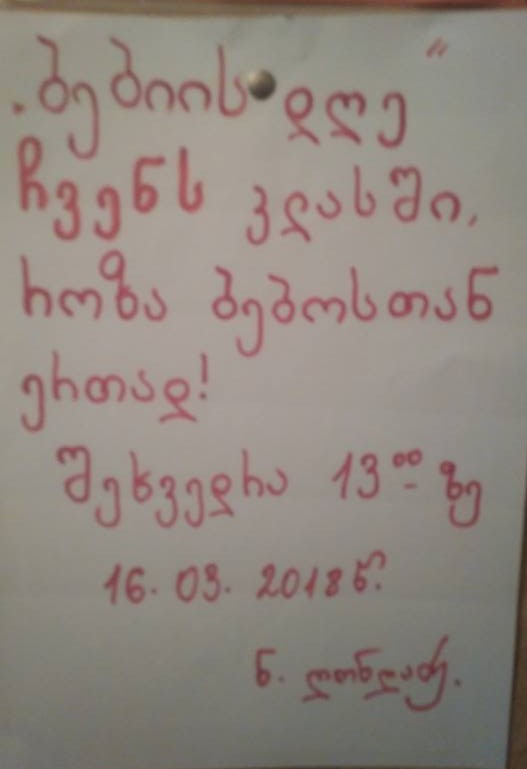 „ბებიის დღე“
ჩვენს კლასში,
როზა ბებოსთან
ერთად!
შეხვედრა 13⁰⁰-ზე
16.03.2018წ.
ნ.